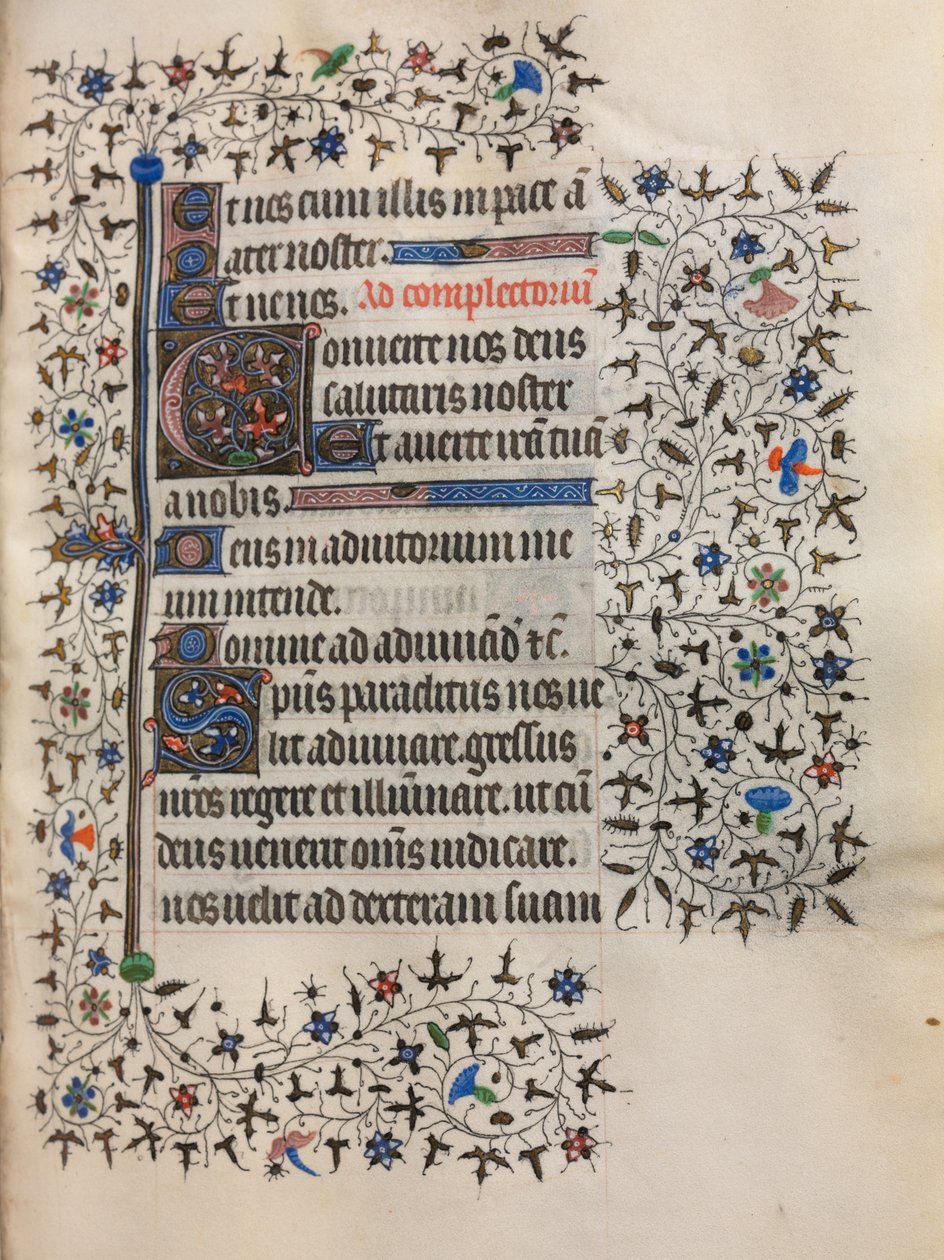 Et nos cum illis in pace am̄
Pater noster.
Et ne nos. Ad complectoriū
Conuerte nos deus
salutaris noster
Et auerte irā tuā
a nobis.
Deus in adiutorium me
um intende.
Domine ad adiuuād' ⁊c̄.
Spūs paraclitus nos ue
lit adiuuare. gressus
nr̄os regere et illūinare. ut cū
deus uenerit om̄s iudicare.
nos uelit ad dexteram suam